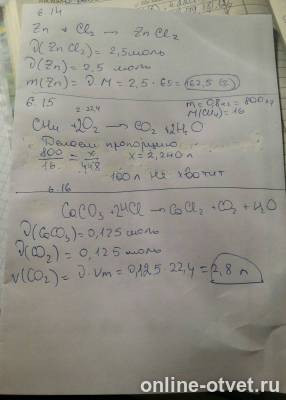 6.14
Zn + Cl₂ → ZnCl₂
ν(ZnCl₂) = 2,5 моль
ν(Zn) = 2,5 моль
m(Zn) = ν·M = 2,5·65 = 162,5 (г)
6.15
2·22,4
m = 0,8 кг = 800 г
M(CH₄) = 16
CH₄ + 2O₂ → CO₂ + 2H₂O
Делаем пропорцию
800/16 = x/44,8
x = 2,240 л
100 л не хватит
6.16
CaCO₃ + 2HCl → CaCl₂ + CO₂ + H₂O
ν(CaCO₃) = 0,125 моль
ν(CO₂) = 0,125 моль
V(CO₂) = ν·Vm = 0,125·22,4 = 2,8 л
online-otvet.ru